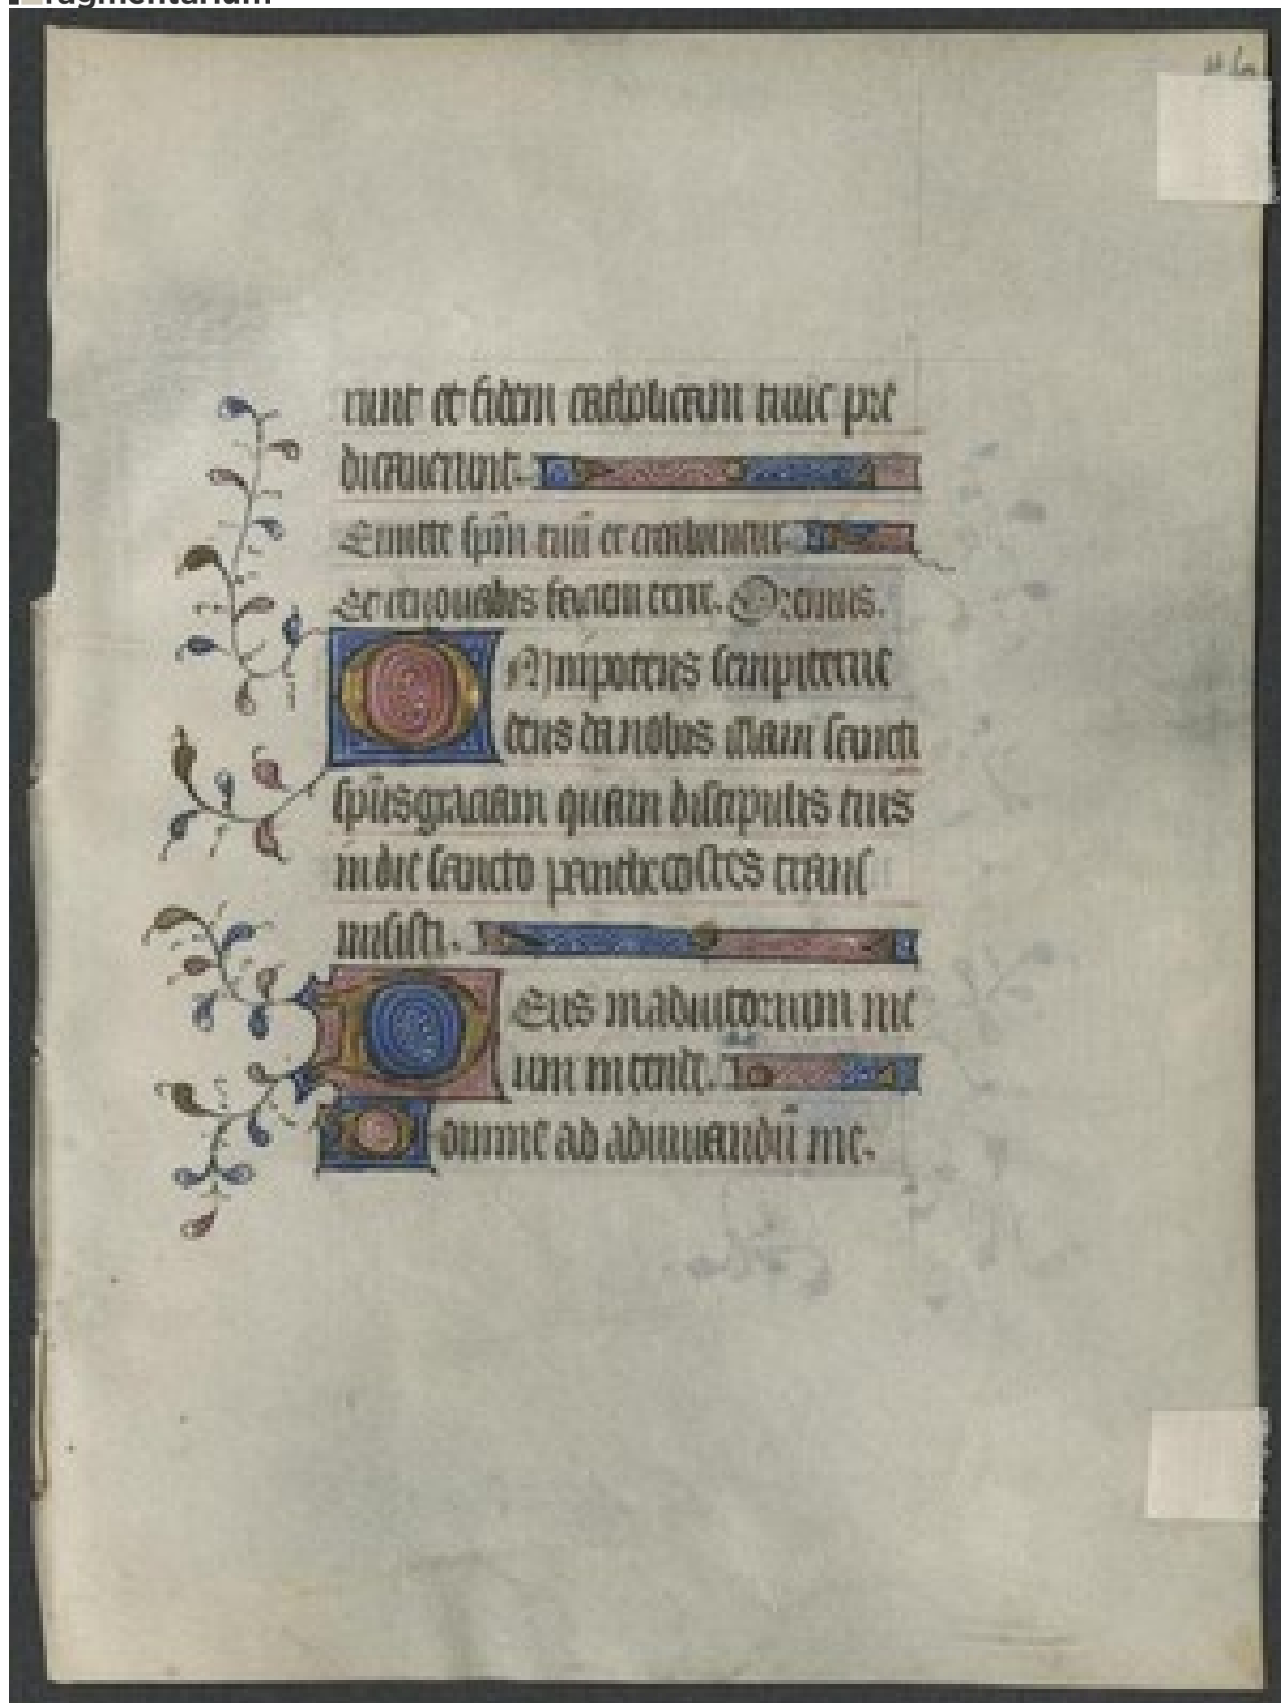 fragmentarium
runt et fidem catholicam tunc pre
dicauerunt.
Emitte spm tuu et creabuntur.
Et renouabis faciem terre. Oremus.
Omnipotens sempiterne
deus da nobis illam sancti
spus graciam quam discipulis tuis
in die sancto penthecostes trans
misisti.
Deus in adiutorium me
um intende.
Domine ad adiuuandu me.